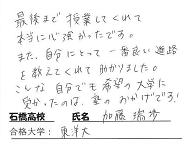 最後まで授業してくれて
本当に心強かったです。
また、自分にとって一番良い進路
を教えてくれて助かりました。
こんな自分でも希望の大学に
受かったのは、塾のおかげです!
石橋高校 氏名 加藤瑞歩
合格大学: 東洋大